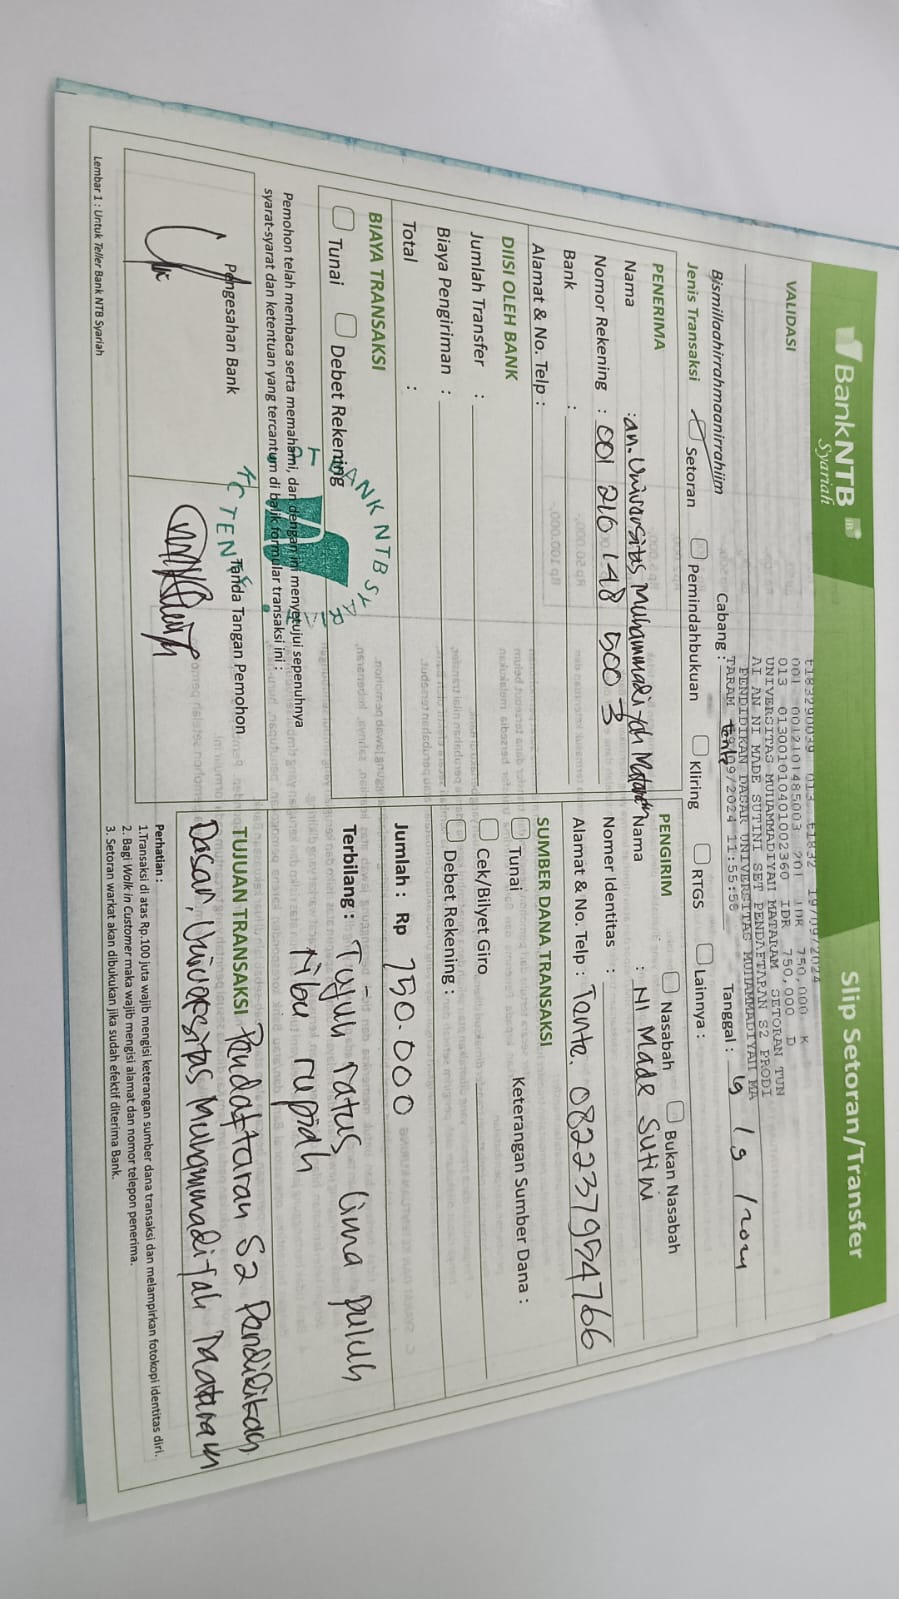 BankNTB
Syariah
Slip Setoran/Transfer
VALIDASI
t183290039 013 t1832 19/09/2024
001 0012101485003 201 IDR 750,000 K
013 0130010104010​02360 IDR 750,000 D
UNIVERSITAS MUHAMMADIYAH MATARAM SETORAN TUN
AI AN NI MADE SUTINI SET PENDAFTARAN S2 PRODI
PENDIDIKAN DASAR UNIVERSITAS MUHAMMADIYAH MA
TARAM 19/09/2024 11:55:56
Bismillaahirrahmaanirrahiim
Cabang : tente
Tanggal : 19 / 9 / 2024
Jenis Transaksi
Setoran
Pemindahbukuan
Kliring
RTGS
Lainnya :
PENERIMA
Nama : an. Universitas Muhammadiyah Mataram
Nomor Rekening : 001 210 148 500 3
Bank :
Alamat & No. Telp :
PENGIRIM
Nasabah
Bukan Nasabah
Nama : NI Made Sutini
Nomer Identitas :
Alamat & No. Telp : Tante. 082237954766
DIISI OLEH BANK
Jumlah Transfer :
Biaya Pengiriman :
Total :
SUMBER DANA TRANSAKSI
Tunai
Keterangan Sumber Dana :
Cek/Bilyet Giro
Debet Rekening :
BIAYA TRANSAKSI
Tunai
Debet Rekening
Jumlah : Rp 750.000
Terbilang : Tujuh ratus lima puluh
ribu rupiah
Pemohon telah membaca serta memahami, dan dengan ini menyetujui sepenuhnya
syarat-syarat dan ketentuan yang tercantum di balik formular transaksi ini :
BANK NTB SYARIAH
KC TENTE
Pengesahan Bank
Tanda Tangan Pemohon
TUJUAN TRANSAKSI Pendaftaran S2 Pendidikan
Dasar, Universitas Muhammadiyah Mataram
Perhatian :
1.Transaksi di atas Rp.100 juta wajib mengisi keterangan sumber dana transaksi dan melampirkan fotokopi identitas diri.
2. Bagi Walk in Customer maka wajib mengisi alamat dan nomor telepon penerima.
3. Setoran warkat akan dibukukan jika sudah efektif diterima Bank.
Lembar 1 : Untuk Teller Bank NTB Syariah